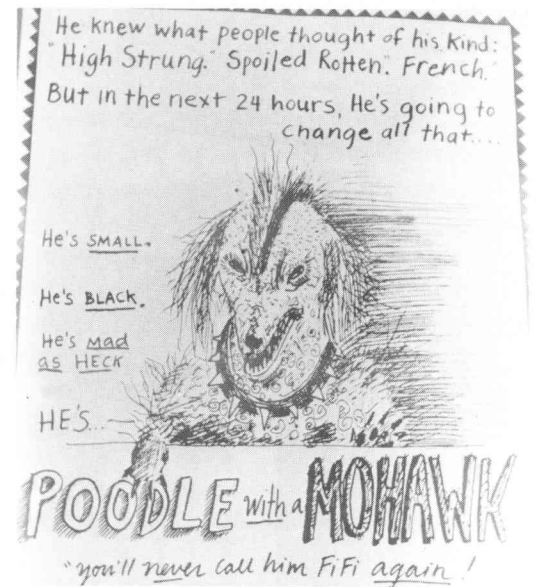 He knew what people thought of his kind:
"High Strung." Spoiled Rotten". French."
But in the next 24 hours, He's going to
change all that....
He's SMALL.
He's BLACK.
He's mad
as HECK
HE'S...
POODLE with a MOHAWK
"you'll never call him FiFi again!